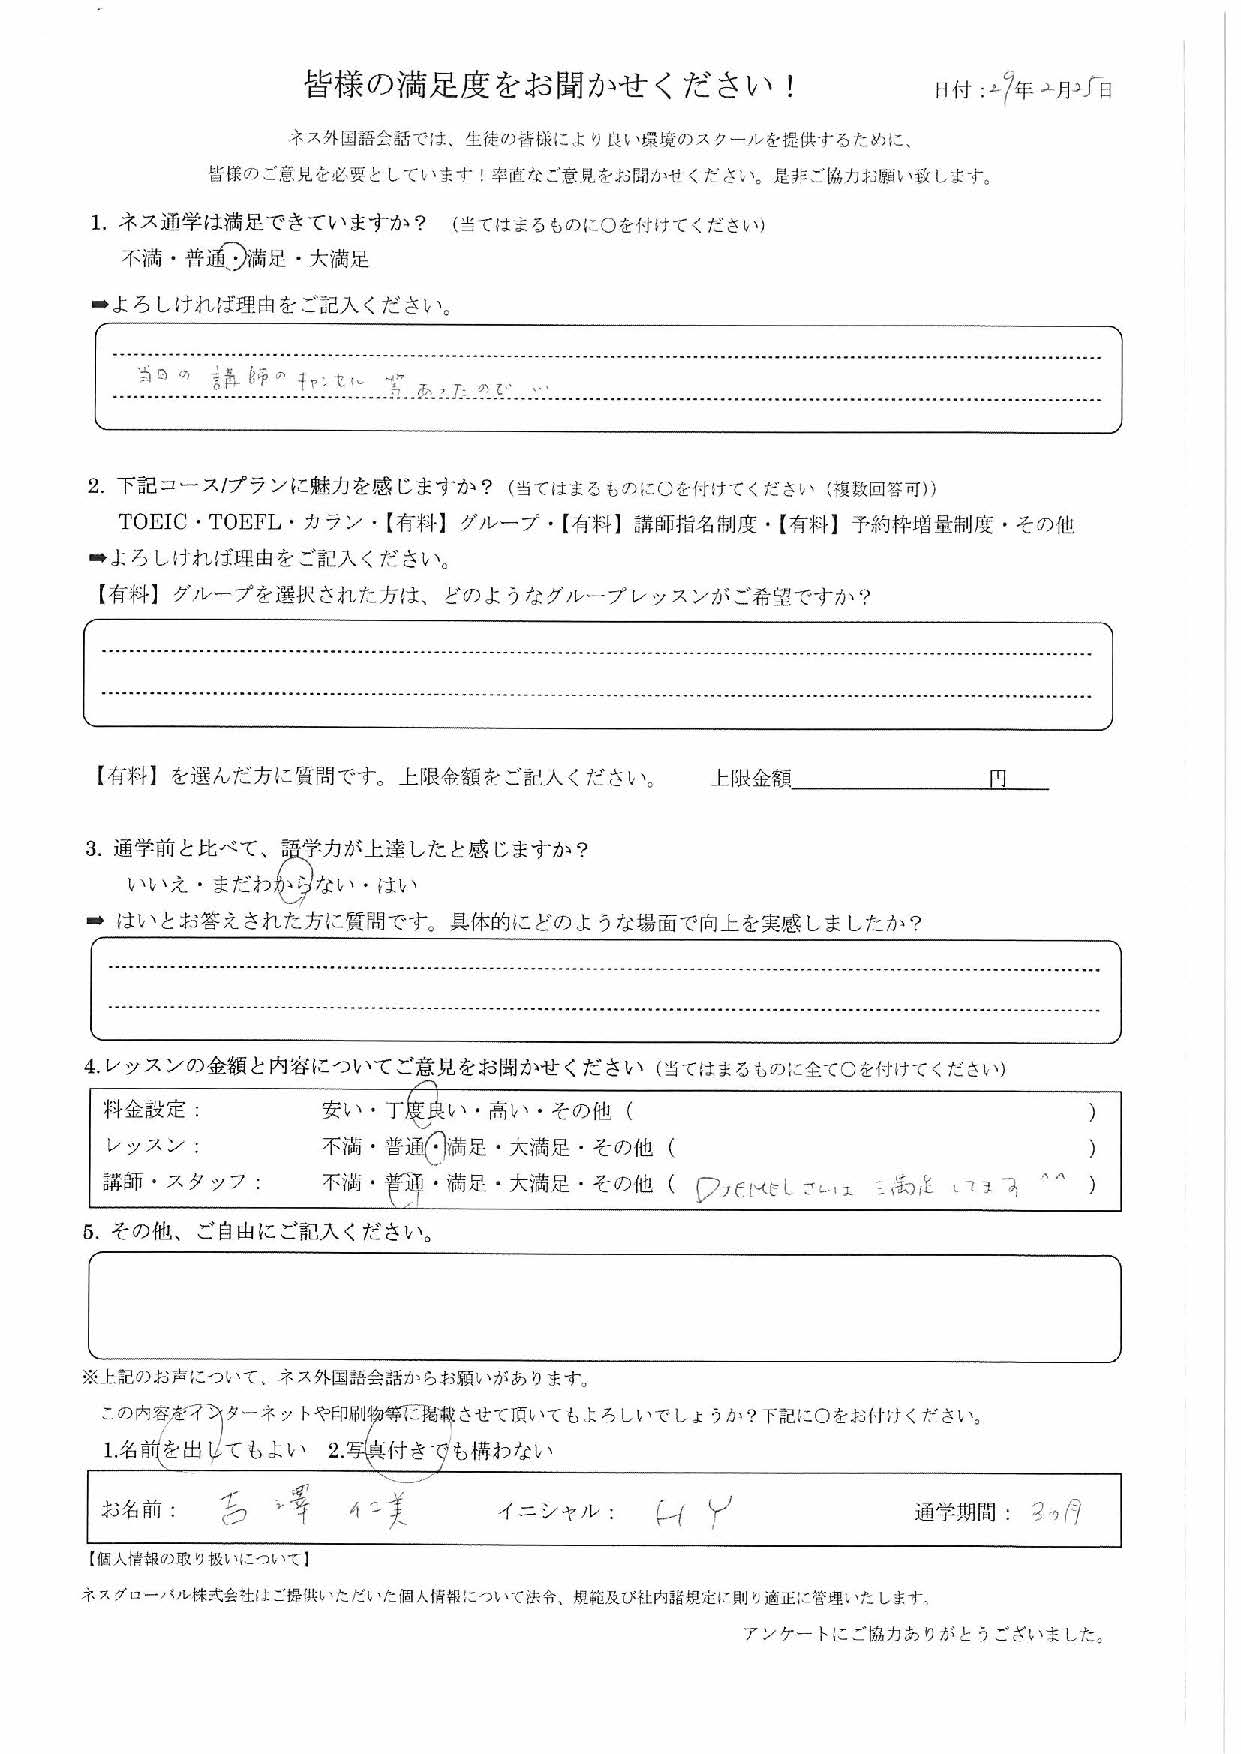 皆様の満足度をお聞かせください！
日付：29年2月25日
ネス外国語会話では、生徒の皆様により良い環境のスクールを提供するために、
皆様のご意見を必要としています！率直なご意見をお聞かせください。是非ご協力お願い致します。
1. ネス通学は満足できていますか？ （当てはまるものに〇を付けてください）
不満・普通・満足・大満足
➡よろしければ理由をご記入ください。
当日の 講師のキャンセル 等 あったので…
2. 下記コース/プランに魅力を感じますか？（当てはまるものに〇を付けてください（複数回答可））
TOEIC・TOEFL・カラン・【有料】グループ・【有料】講師指名制度・【有料】予約枠増量制度・その他
➡よろしければ理由をご記入ください。
【有料】グループを選択された方は、どのようなグループレッスンがご希望ですか？
【有料】を選んだ方に質問です。上限金額をご記入ください。 上限金額 円
3. 通学前と比べて、語学力が上達したと感じますか？
いいえ・まだわからない・はい
➡ はいとお答えされた方に質問です。具体的にどのような場面で向上を実感しましたか？
4.レッスンの金額と内容についてご意見をお聞かせください（当てはまるものに全て〇を付けてください）
料金設定： 安い・丁度良い・高い・その他（ ）
レッスン： 不満・普通・満足・大満足・その他（ ）
講師・スタッフ： 不満・普通・満足・大満足・その他（ DJEMELさんは 満足 してます ^^ ）
5. その他、ご自由にご記入ください。
※上記のお声について、ネス外国語会話からお願いがあります。
この内容をインターネットや印刷物等に掲載させて頂いてもよろしいでしょうか？下記に〇をお付けください。
1.名前を出してもよい 2.写真付きでも構わない
お名前： 吉澤 仁美 イニシャル： H Y 通学期間： 3ヶ月
【個人情報の取り扱いについて】
ネスグローバル株式会社はご提供いただいた個人情報について法令、規範及び社内諸規定に則り適正に管理いたします。
アンケートにご協力ありがとうございました。